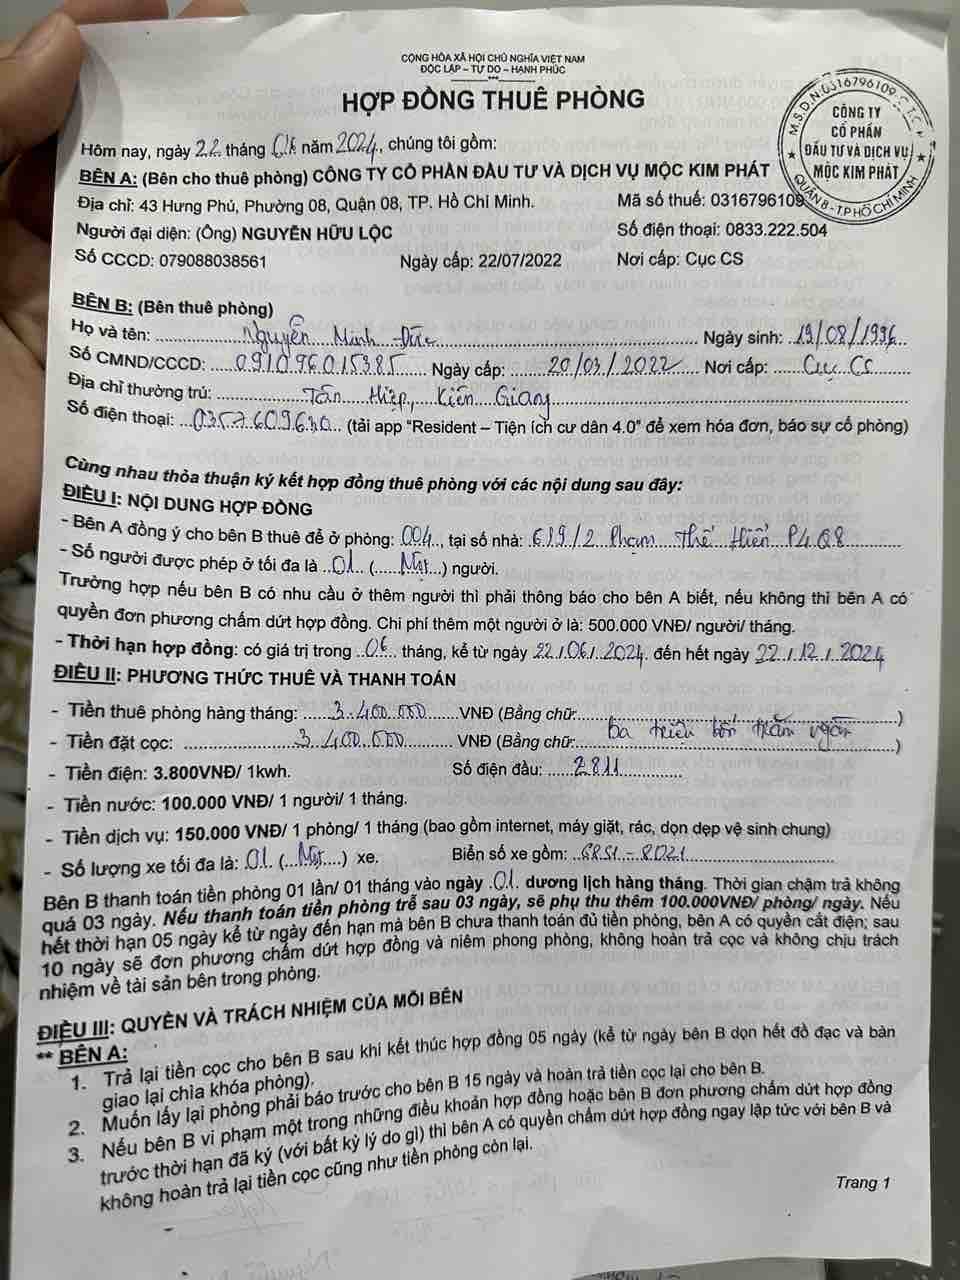 CỘNG HÒA XÃ HỘI CHỦ NGHĨA VIỆT NAM
ĐỘC LẬP – TỰ DO – HẠNH PHÚC
***
HỢP ĐỒNG THUÊ PHÒNG
M.S.D.N:0316796109-C.T.C.P
CÔNG TY
CỔ PHẦN
ĐẦU TƯ VÀ DỊCH VỤ
MỘC KIM PHÁT
QUẬN 8 - T.P HỒ CHÍ MINH
Hôm nay, ngày 22 tháng 06 năm 2024, chúng tôi gồm:
BÊN A: (Bên cho thuê phòng) CÔNG TY CỔ PHẦN ĐẦU TƯ VÀ DỊCH VỤ MỘC KIM PHÁT
Địa chỉ: 43 Hưng Phú, Phường 08, Quận 08, TP. Hồ Chí Minh. Mã số thuế: 0316796109
Người đại diện: (Ông) NGUYỄN HỮU LỘC Số điện thoại: 0833.222.504
Số CCCD: 079088038561 Ngày cấp: 22/07/2022 Nơi cấp: Cục CS
BÊN B: (Bên thuê phòng)
Họ và tên: Nguyễn Minh Đức Ngày sinh: 19/08/1996
Số CMND/CCCD: 091096015385 Ngày cấp: 20/03/2022 Nơi cấp: Cục CS
Địa chỉ thường trú: Tân Hiệp, Kiên Giang
Số điện thoại: 0357609630 (tải app "Resident – Tiện ích cư dân 4.0" để xem hóa đơn, báo sự cố phòng)
Cùng nhau thỏa thuận ký kết hợp đồng thuê phòng với các nội dung sau đây:
ĐIỀU I: NỘI DUNG HỢP ĐỒNG
- Bên A đồng ý cho bên B thuê để ở phòng: 004, tại số nhà: 619/2 Phạm Thế Hiển P4 Q8
- Số người được phép ở tối đa là 01 (Một) người.
Trường hợp nếu bên B có nhu cầu ở thêm người thì phải thông báo cho bên A biết, nếu không thì bên A có
quyền đơn phương chấm dứt hợp đồng. Chi phí thêm một người ở là: 500.000 VNĐ/ người/ tháng.
- Thời hạn hợp đồng: có giá trị trong 06 tháng, kể từ ngày 22/06/2024 đến hết ngày 22/12/2024
ĐIỀU II: PHƯƠNG THỨC THUÊ VÀ THANH TOÁN
- Tiền thuê phòng hàng tháng: 3.400.000 VNĐ (Bằng chữ: ba triệu bốn trăm ngàn)
- Tiền đặt cọc: 3.400.000 VNĐ (Bằng chữ: )
- Tiền điện: 3.800VNĐ/ 1kwh. Số điện đầu: 2811
- Tiền nước: 100.000 VNĐ/ 1 người/ 1 tháng.
- Tiền dịch vụ: 150.000 VNĐ/ 1 phòng/ 1 tháng (bao gồm internet, máy giặt, rác, dọn dẹp vệ sinh chung)
- Số lượng xe tối đa là: 01 (Một) xe. Biển số xe gồm: 68S1-8021
Bên B thanh toán tiền phòng 01 lần/ 01 tháng vào ngày 01 dương lịch hàng tháng. Thời gian chậm trả không
quá 03 ngày. Nếu thanh toán tiền phòng trễ sau 03 ngày, sẽ phụ thu thêm 100.000VNĐ/ phòng/ ngày. Nếu
hết thời hạn 05 ngày kể từ ngày đến hạn mà bên B chưa thanh toán đủ tiền phòng, bên A có quyền cắt điện; sau
10 ngày sẽ đơn phương chấm dứt hợp đồng và niêm phong phòng, không hoàn trả cọc và không chịu trách
nhiệm về tài sản bên trong phòng.
ĐIỀU III: QUYỀN VÀ TRÁCH NHIỆM CỦA MỖI BÊN
** BÊN A:
1. Trả lại tiền cọc cho bên B sau khi kết thúc hợp đồng 05 ngày (kể từ ngày bên B dọn hết đồ đạc và bàn
giao lại chìa khóa phòng).
2. Muốn lấy lại phòng phải báo trước cho bên B 15 ngày và hoàn trả tiền cọc lại cho bên B.
3. Nếu bên B vi phạm một trong những điều khoản hợp đồng hoặc bên B đơn phương chấm dứt hợp đồng
trước thời hạn đã ký (với bất kỳ lý do gì) thì bên A có quyền chấm dứt hợp đồng ngay lập tức với bên B và
không hoàn trả lại tiền cọc cũng như tiền phòng còn lại.
Trang 1